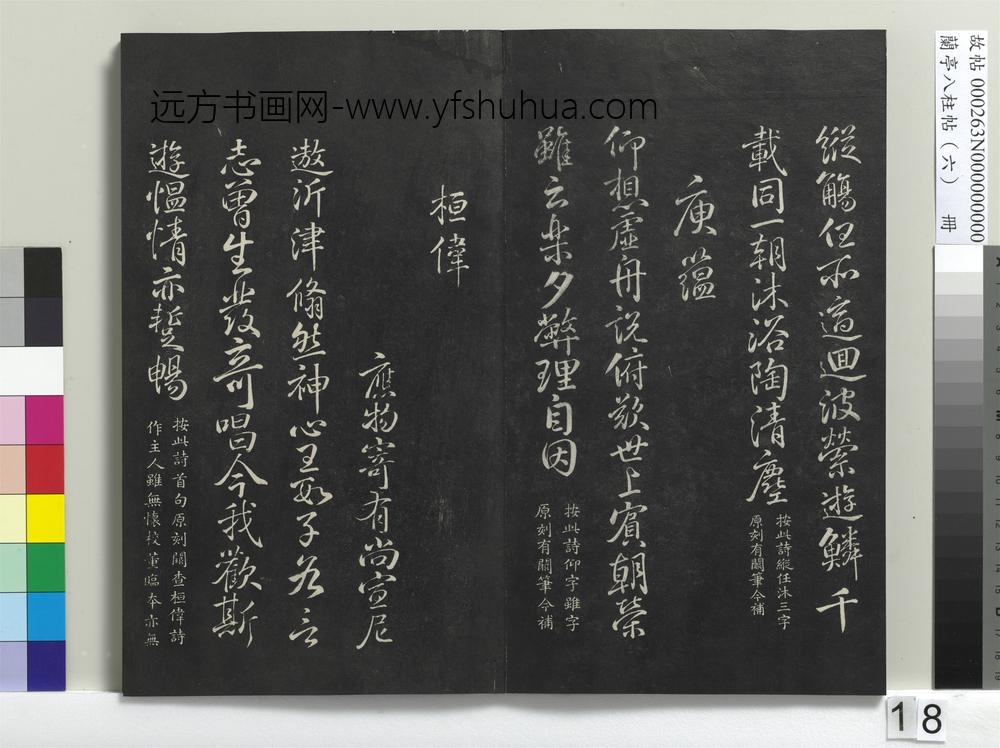 縱觴任所適迴波縈遊鱗千
載同一朝沐浴陶清塵
按此詩縱任沐三字
原刻有闕筆今補
庾蘊
仰想虛舟說俯歎世上賓朝榮
雖云樂夕弊理自因
按此詩仰字雖字
原刻有闕筆今補
桓偉
應物寄有尚宣尼
遨沂津翛然神心王數子各言
志曾生發奇唱今我歡斯
遊慍情亦蹔暢
按此詩首句原刻闕查桓偉詩
作主人雖無懷校董臨本亦無
远方书画网-www.yfshuhua.com
故帖000263N000000000
蘭亭八柱帖（六） 冊
18